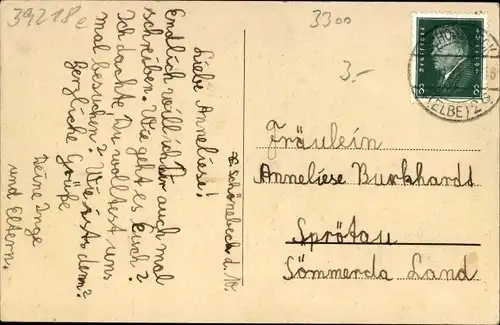 39218e
3300
3.-
Schönebeck d. 
Liebe Anneliese!
Endlich will ich Dir auch mal
schreiben. Wie geht es Euch?
Ich dachte, Du wolltest uns
mal besuchen? Wie ists denn?
Herzliche Grüße
Deine Inge
und Eltern.
(ELBE) 2
8 8
Fräulein
Anneliese Burkhardt
Sprötau
Sömmerda Land